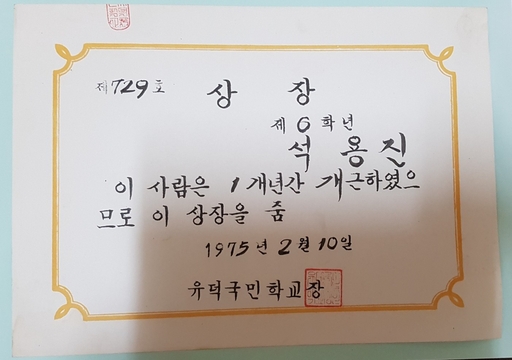 제729호
상 장
제 6 학년
석 용 진
이 사람은 1개년간 개근하였으
므로 이 상장을 줌
1975년 2월 10일
유덕국민학교장